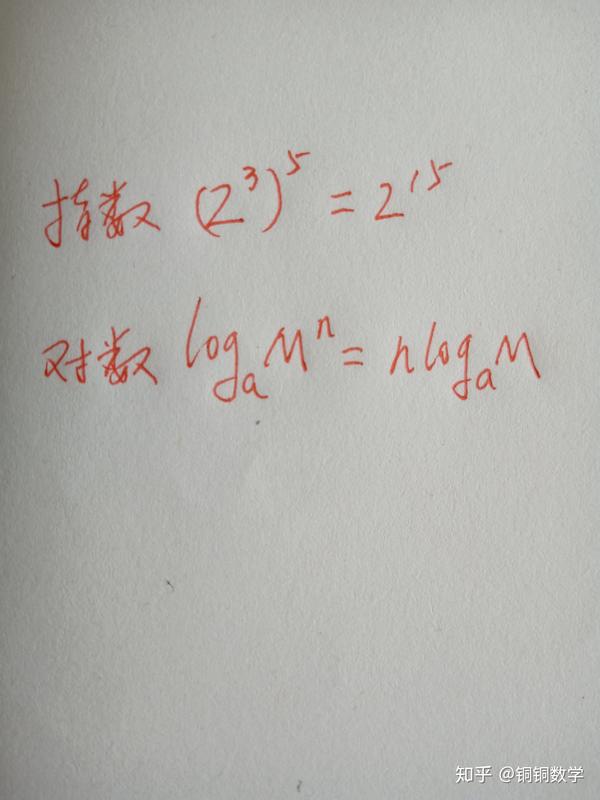 指数 (2³)⁵ = 2¹⁵
对数 logₐMⁿ = n logₐM
知乎 @铜铜数学